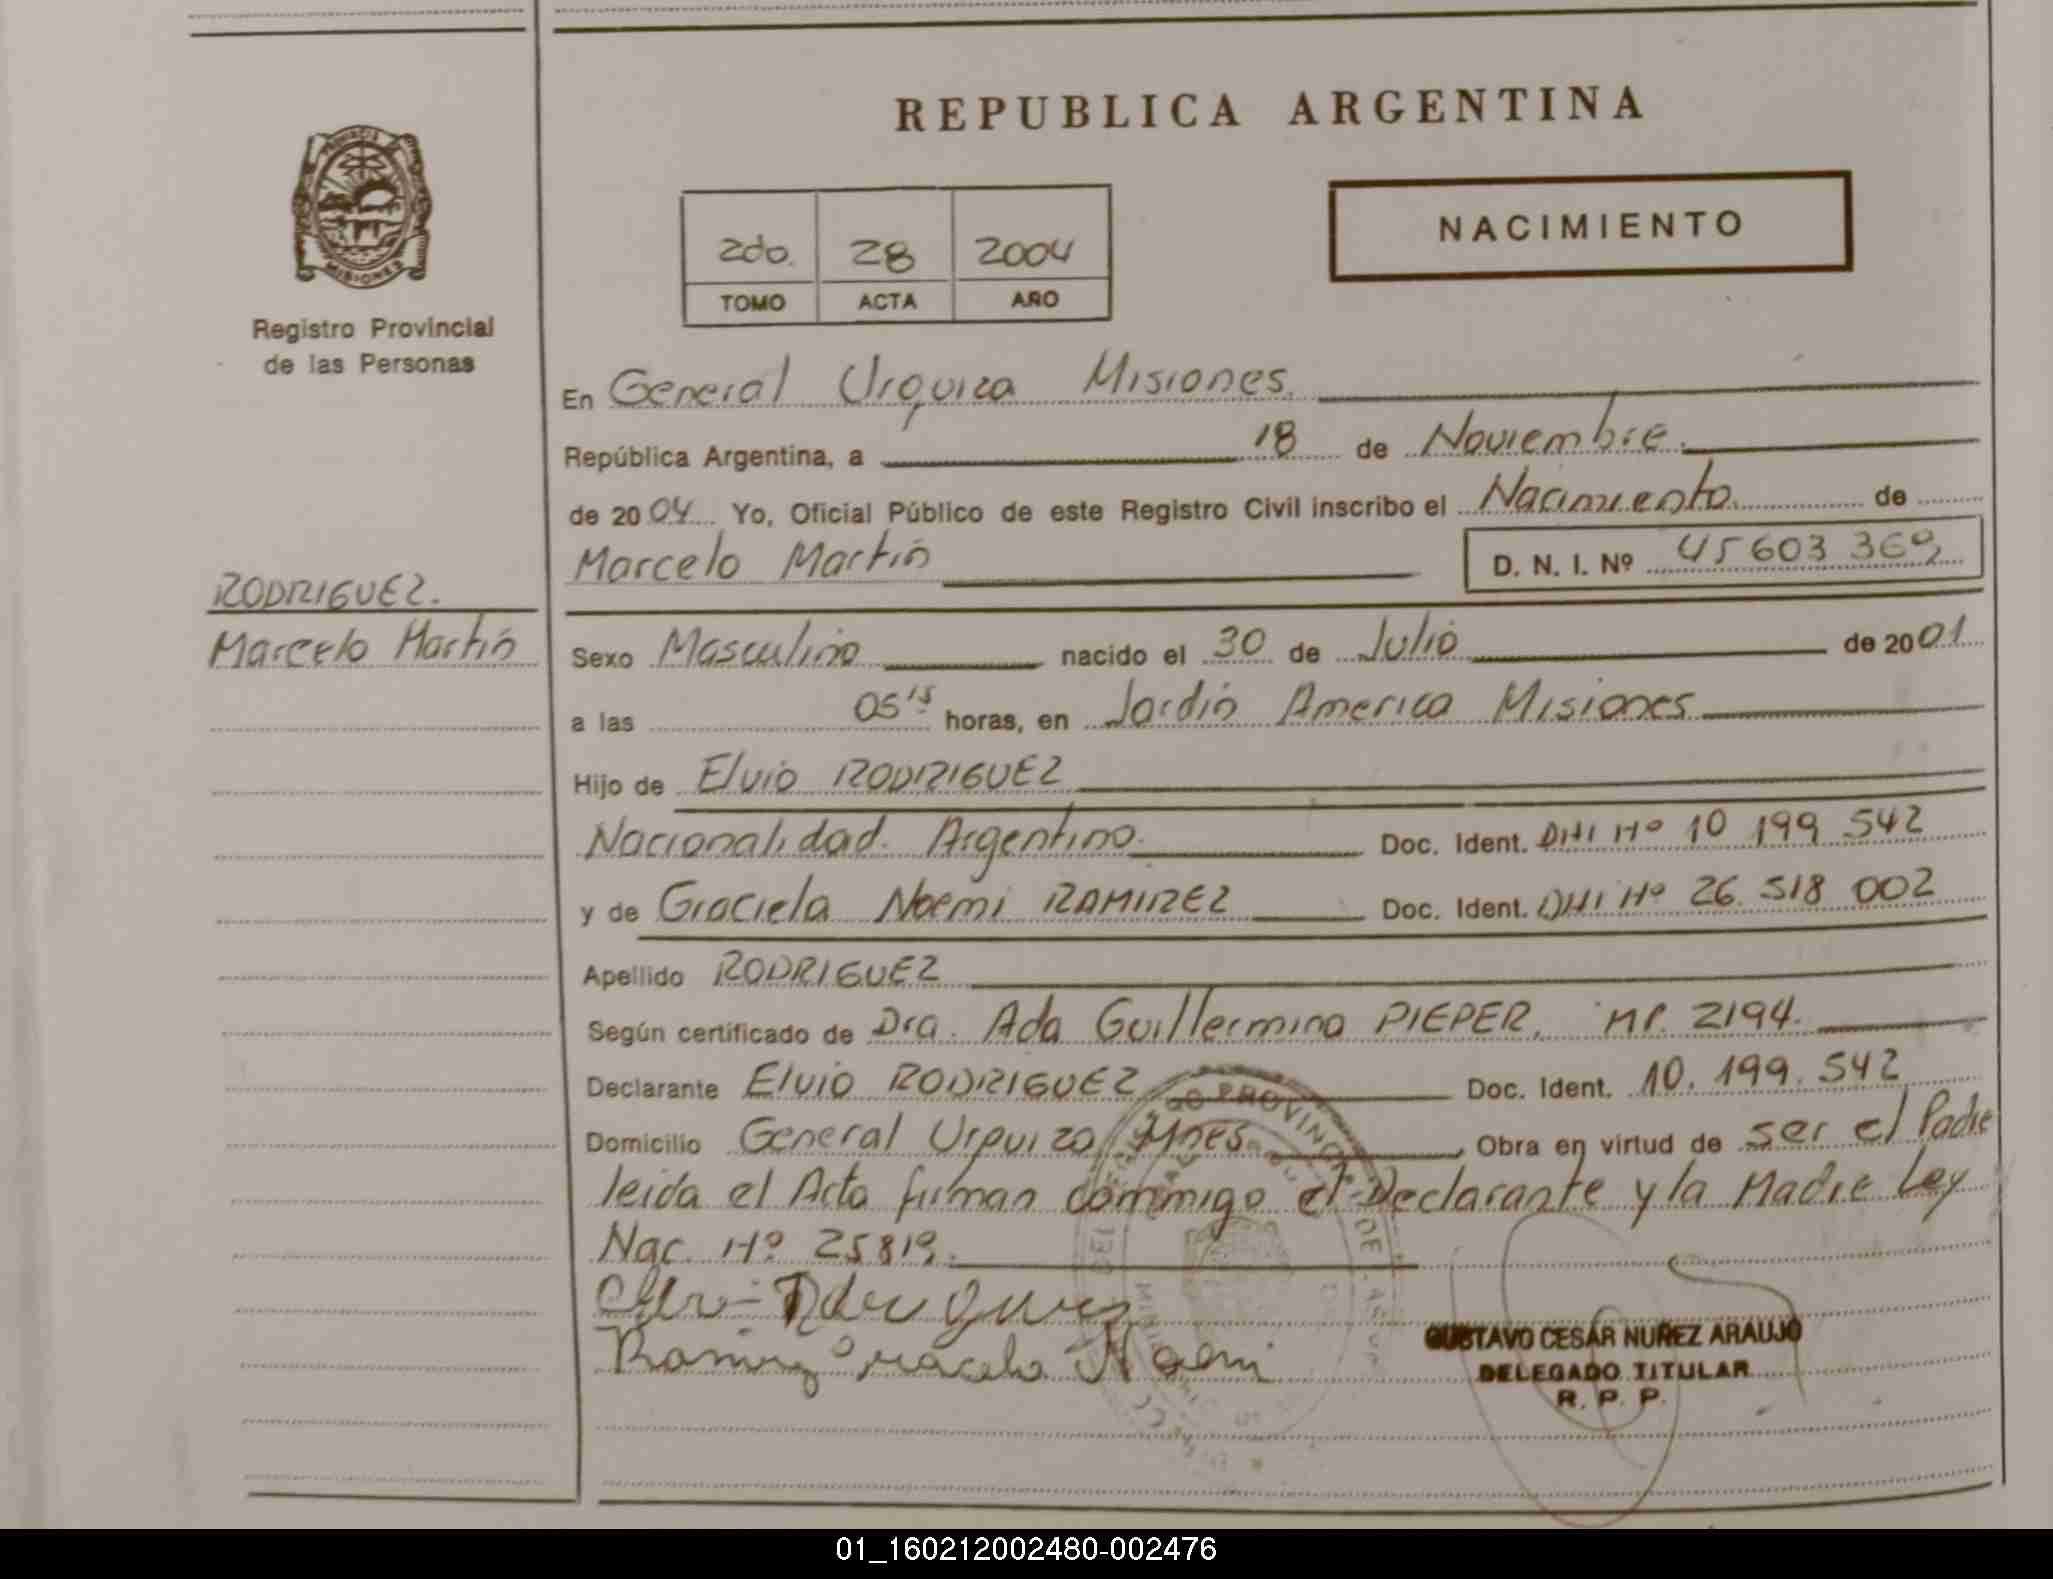 REPUBLICA ARGENTINA
PROVINCIA DE
MISIONES
Registro Provincial
de las Personas
2do. 28 2004
TOMO ACTA AÑO
NACIMIENTO
En General Urquiza Misiones.
República Argentina, a 18 de Noviembre.
de 2004 Yo, Oficial Público de este Registro Civil inscribo el Nacimiento. de
Marcelo Martin D. N. I. Nº 45603 369
RODRIGUEZ.
Marcelo Martin
Sexo Masculino nacido el 30 de Julio de 2001
a las 05'15 horas, en Jardin America Misiones
Hijo de Elvio RODRIGUEZ
Nacionalidad. Argentino. Doc. Ident. DNI Nº 10 199 542
y de Graciela Noemi RAMIREZ Doc. Ident. DNI Nº 26.518 002
Apellido RODRIGUEZ
Según certificado de Dra. Ada Guillermina PIEPER, MP. 2194.
Declarante Elvio RODRIGUEZ Doc. Ident. 10.199.542
Domicilio General Urquiza Mnes. Obra en virtud de ser el Padre
leida el Acta firman commigo el Declarante y la Madre Ley
Nac. Nº 25819.
Ramirez Graciela Noemi
GUSTAVO CESAR NUÑEZ ARAUJO
DELEGADO TITULAR
R. P. P.
01_160212002480-002476